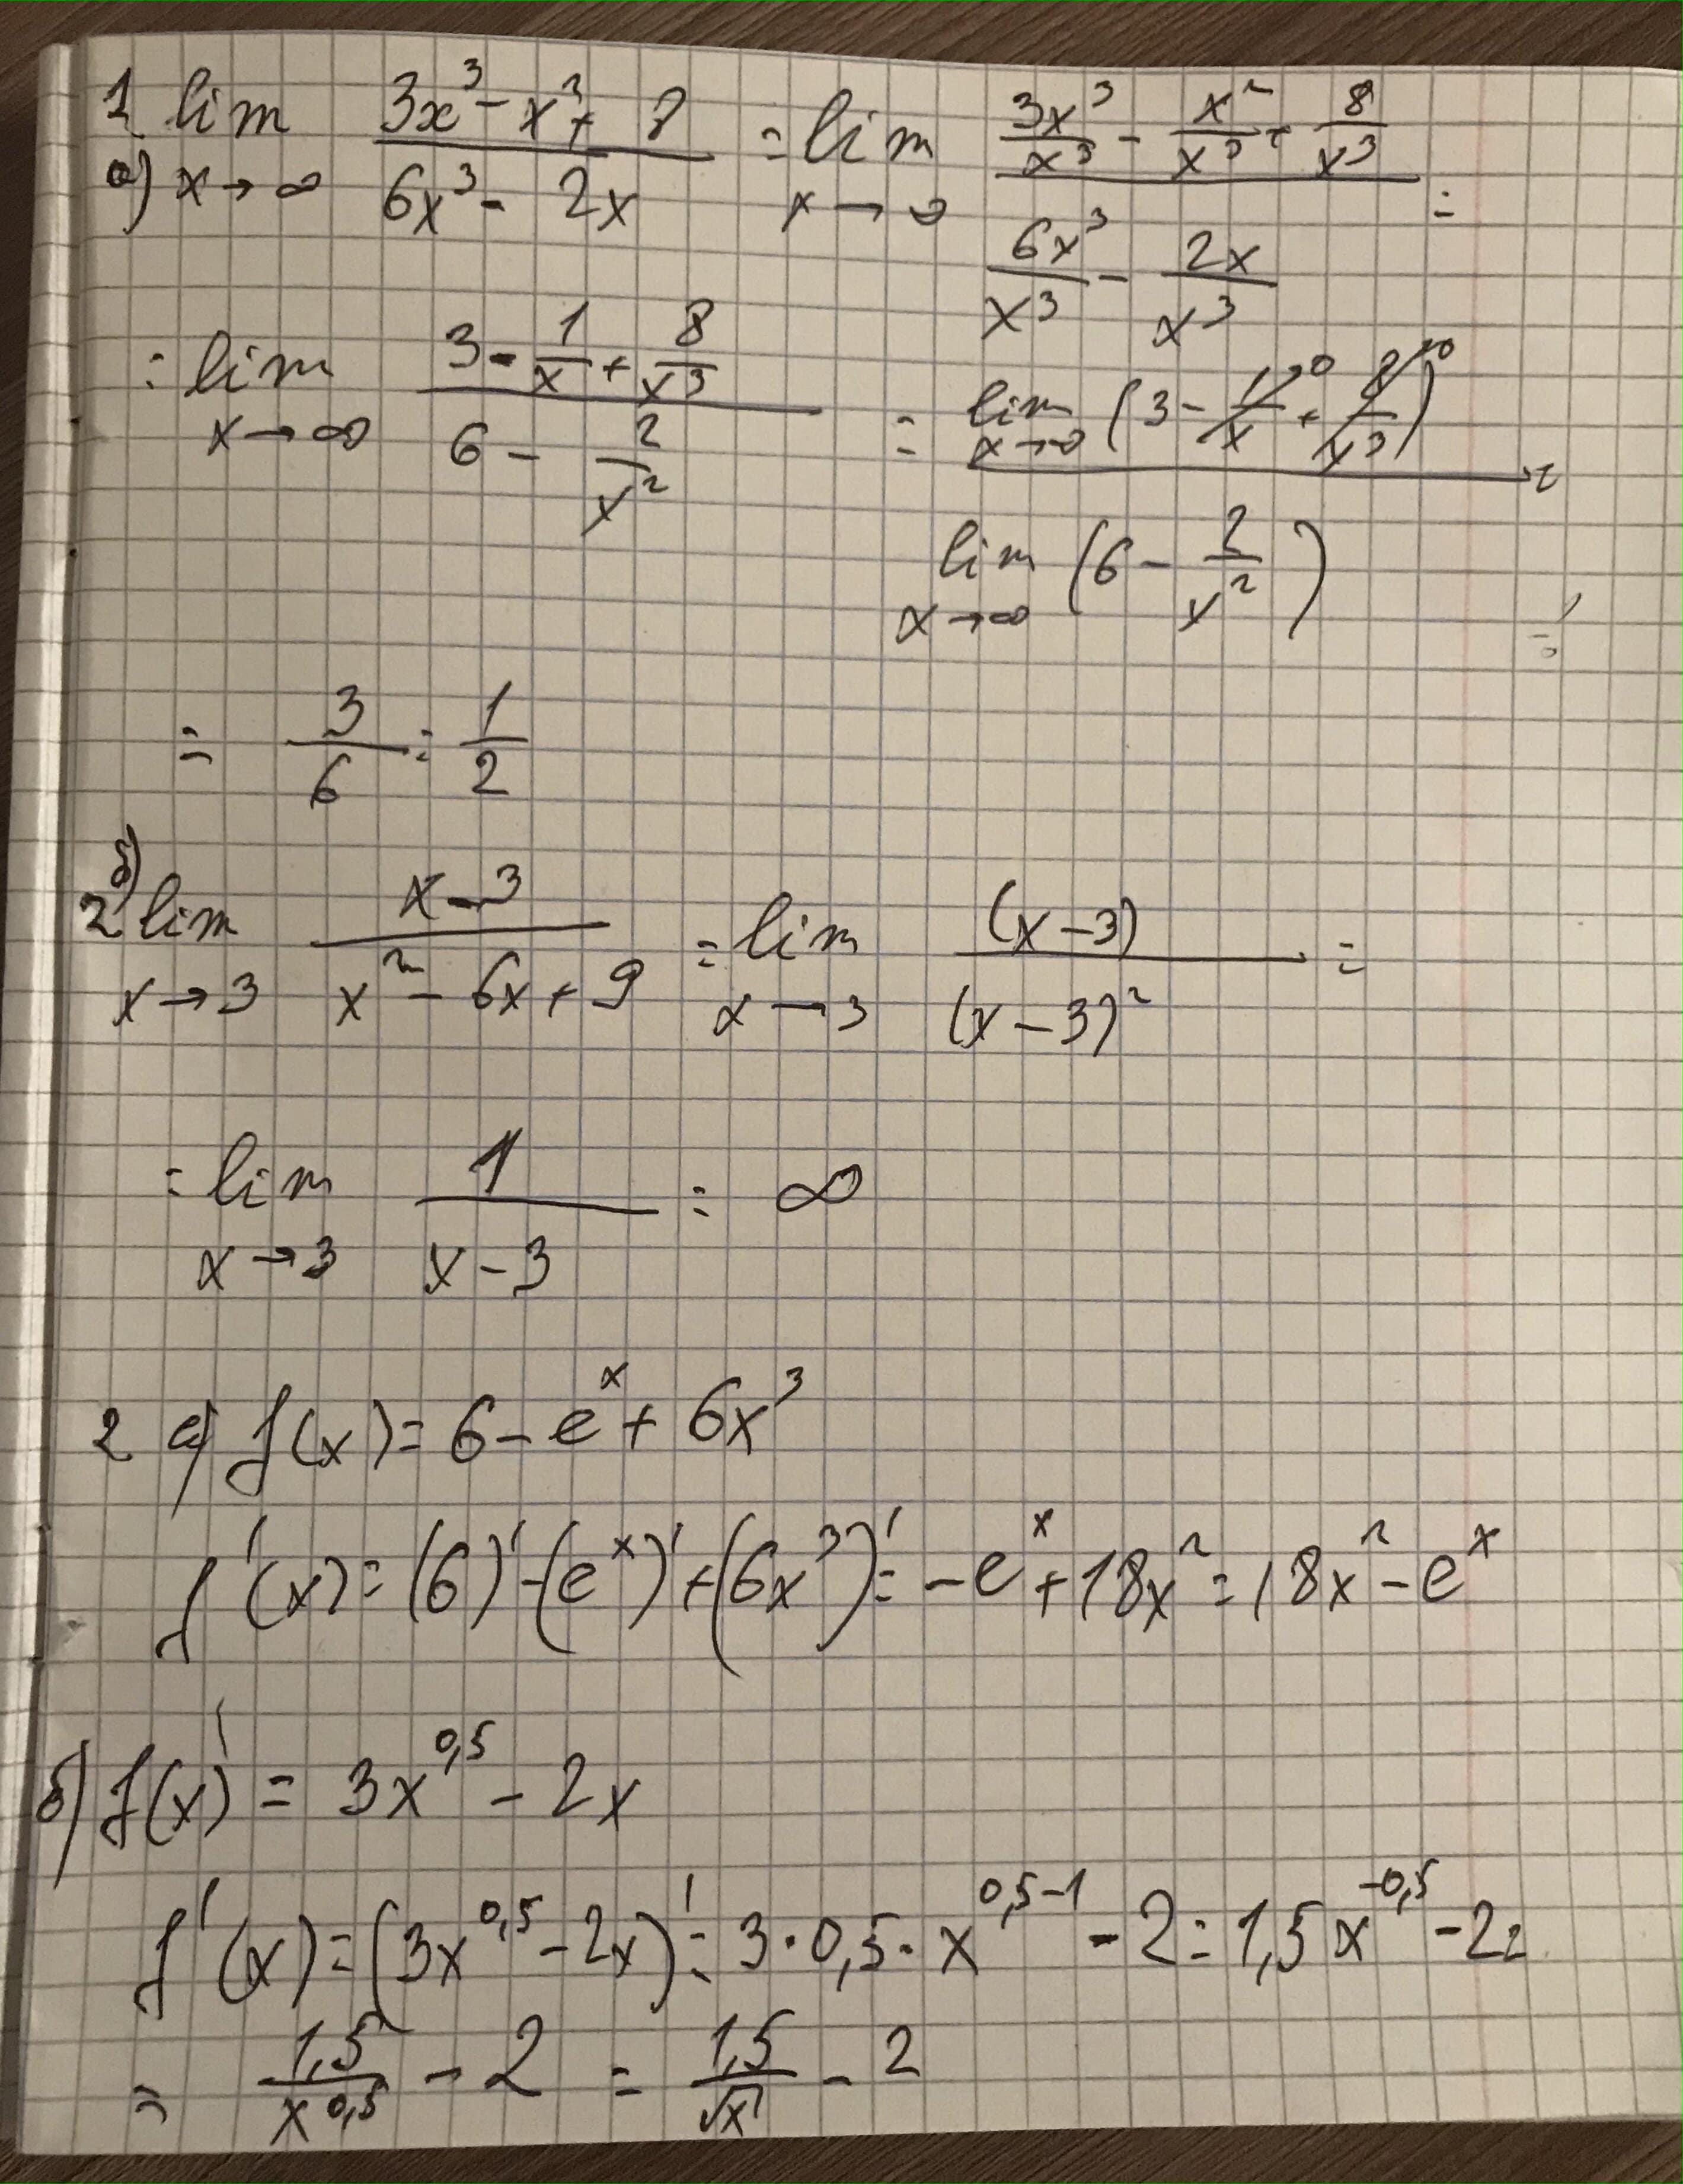 1 lim 3x³ - x² + 8 / 6x³ - 2x = lim 3x³/x³ - x²/x³ + 8/x³ / 6x³/x³ - 2x/x³ =
а) x→∞ x→∞
= lim 3 - 1/x + 8/x³ / 6 - 2/x² = lim (3 - 1/x →0 + 8/x³ →0) / lim (6 - 2/x²) =
x→∞ x→∞ x→∞
= 3/6 = 1/2
б)
2 lim x - 3 / x² - 6x + 9 = lim (x - 3) / (x - 3)² =
x→3 x→3
= lim 1 / x - 3 = ∞
x→3
2 а) f(x) = 6 - eˣ + 6x³
f'(x) = (6)' - (eˣ)' + (6x³)' = -eˣ + 18x² = 18x² - eˣ
б) f(x)' = 3x^0,5 - 2x
f'(x) = (3x^0,5 - 2x)' = 3 · 0,5 · x^0,5-1 - 2 = 1,5x^-0,5 - 2 =
= 1,5/x^0,5 - 2 = 1,5/√x - 2